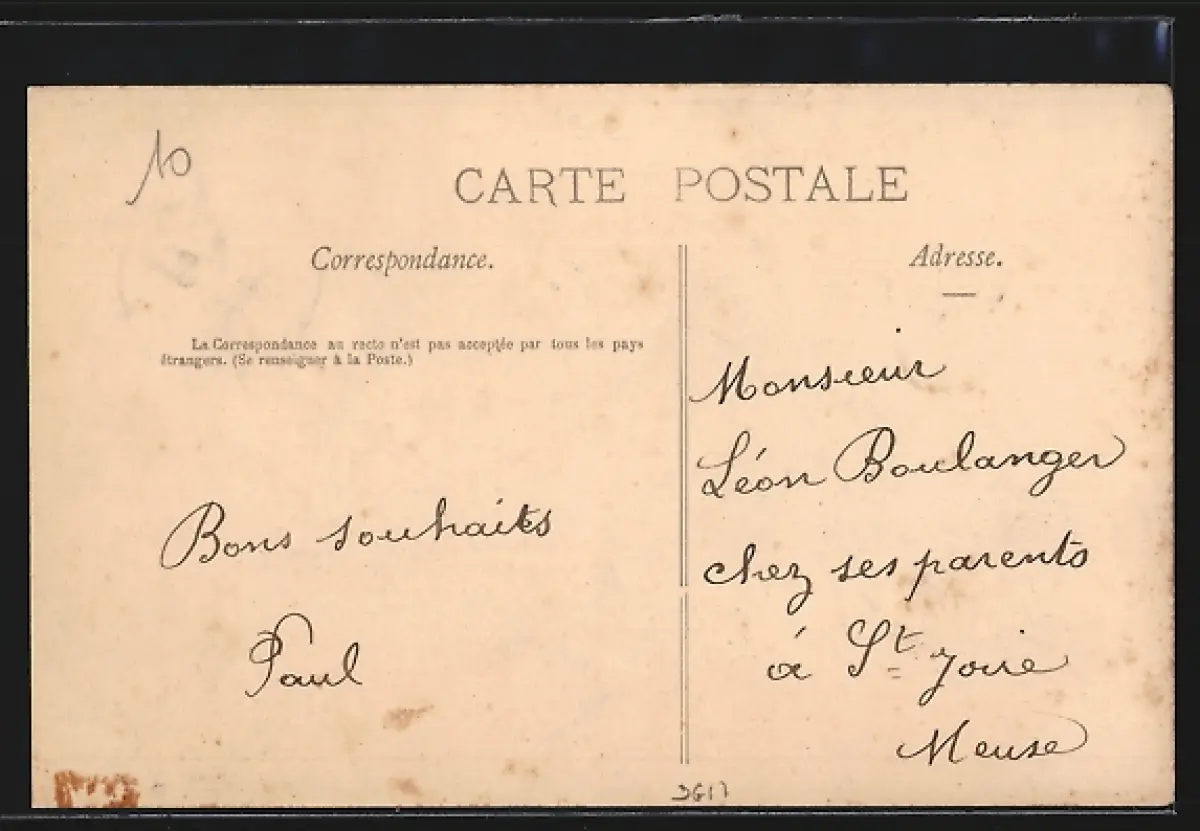 10
CARTE POSTALE
Correspondance.
Adresse.
La Correspondance au recto n'est pas acceptée par tous les pays
étrangers. (Se renseigner à la Poste.)
Bons souhaits
Paul
Monsieur
Léon Boulanger
chez ses parents
à St Joire
Meuse